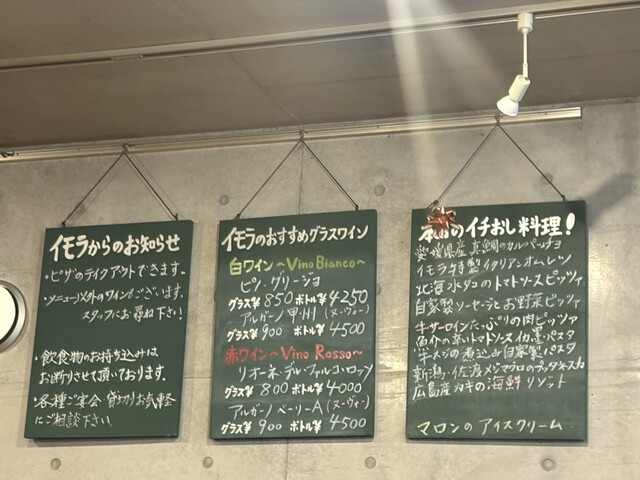 イモラからのお知らせ
・ピザのテイクアウトできます。
・メニュー以外のワインもございます。
スタッフにお尋ね下さい!
・飲食物のお持ち込みは
お断りさせて頂いております。
・各種ご宴会、貸切りお気軽
にご相談下さい。
イモラのおすすめグラスワイン
白ワイン～Vino Bianco～
ピノ・グリージョ
グラス¥850 ボトル¥4250
アルガーノ甲州 (ヌーヴォー)
グラス¥900 ボトル¥4500
赤ワイン～Vino Rosso～
リオーネ・デル・ファルコ・ロッソ
グラス¥800 ボトル¥4000
アルガーノ ベーリーA (ヌーヴォ)
グラス¥900 ボトル¥4500
本日のイチおし料理!
愛媛県産真鯛のカルパッチョ
イモラ特製イタリアンオムレツ
北海水ダコのトマトソースピッツァ
自家製ソーセージとお野菜ピッツァ
牛サーロインたっぷりの肉ピッツァ
魚介の辛いトマトソースイカ墨パスタ
牛スジの煮込み自家製パスタ
新潟・佐渡メジマグロの
広島産カキの海鮮リゾット
マロンのアイスクリーム